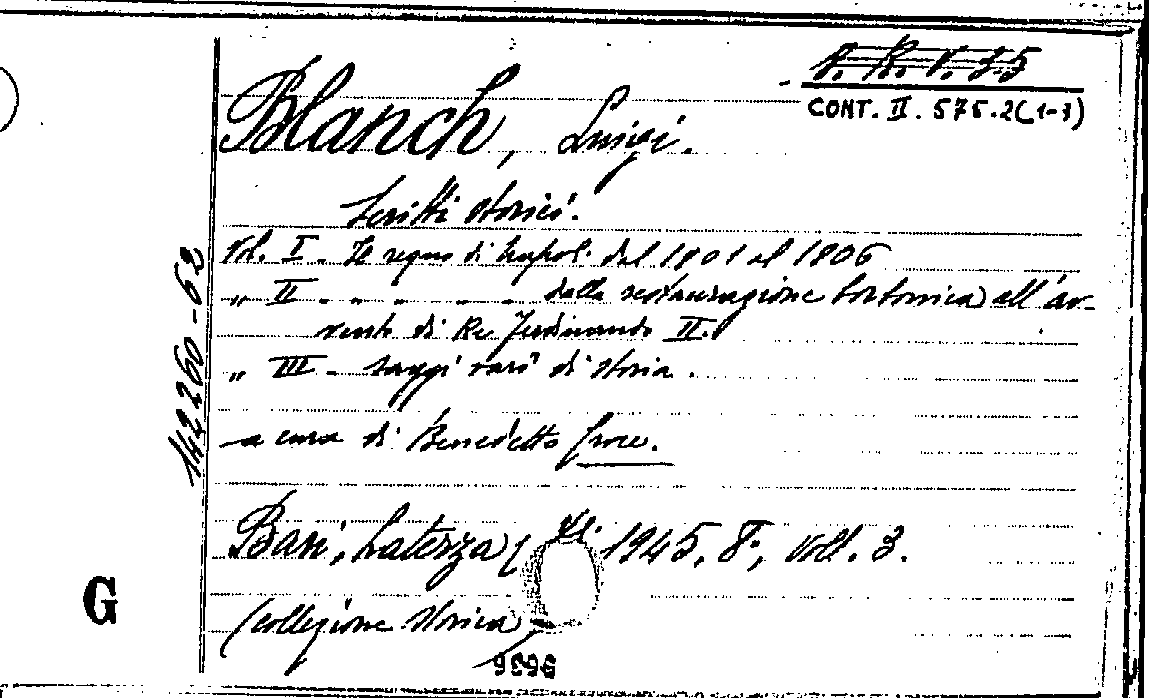 CONT. II. 575.2(1-3)
Blanch, Luigi.
Scritti storici.
Vol. I. Il regno di Napoli dal 1801 al 1806
„ II - - - - - dalla restaurazione borbonica all'av-
vento di Re Ferdinando II.
„ III - saggi vari di storia.
a cura di Benedetto Croce.
Bari, Laterza, 1945, 8°, voll. 3.
(collezione storica)
9696
142260-62
G